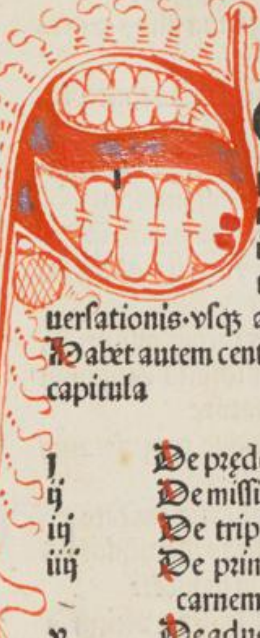 uersationis·vsqꝫ a
Habet autem cent
capitula
j De pręd
ij De missi
iij De trip
iiij De prim
carnem
v De adu